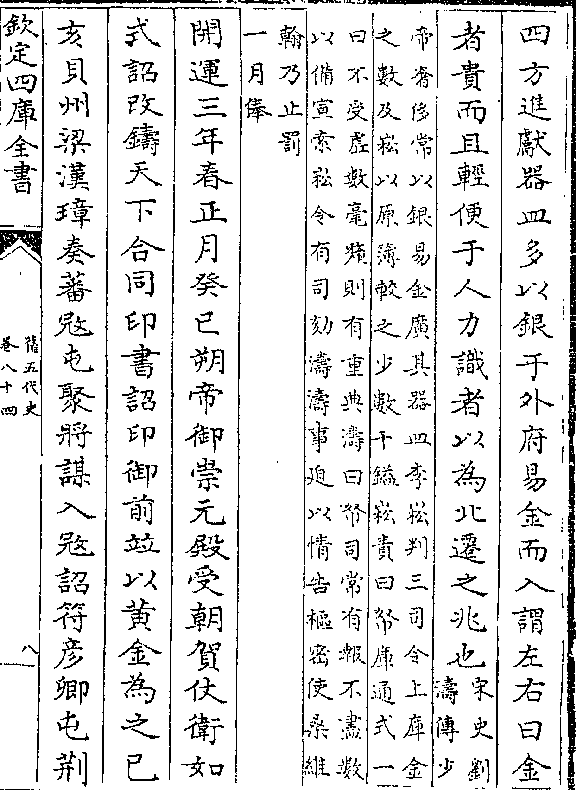 四方進獻器皿多以銀于外府易金而入謂左右曰金
者貴而且輕便于人力識者以為北遷之兆也
宋史劉
濤傳少
帝奢侈常以銀易金廣其器皿李崧判三司令上庫金
之數及崧以原簿較之少數千鎰崧責曰帑庫通式一
曰不受虛數毫釐則有重典濤曰帑司常有報不盡數
以備宣索崧令有司劾濤濤事迫以情告樞密使桑維
翰乃止罰
一月俸
開運三年春正月癸已朔帝御崇元殿受朝賀仗衛如
式詔改鑄天下合同印書詔印御前竝以黃金為之已
亥貝州梁漢璋奏蕃冦屯聚將謀入冦詔符彥卿屯荆
欽定四庫全書
舊五代史
卷八十四
八